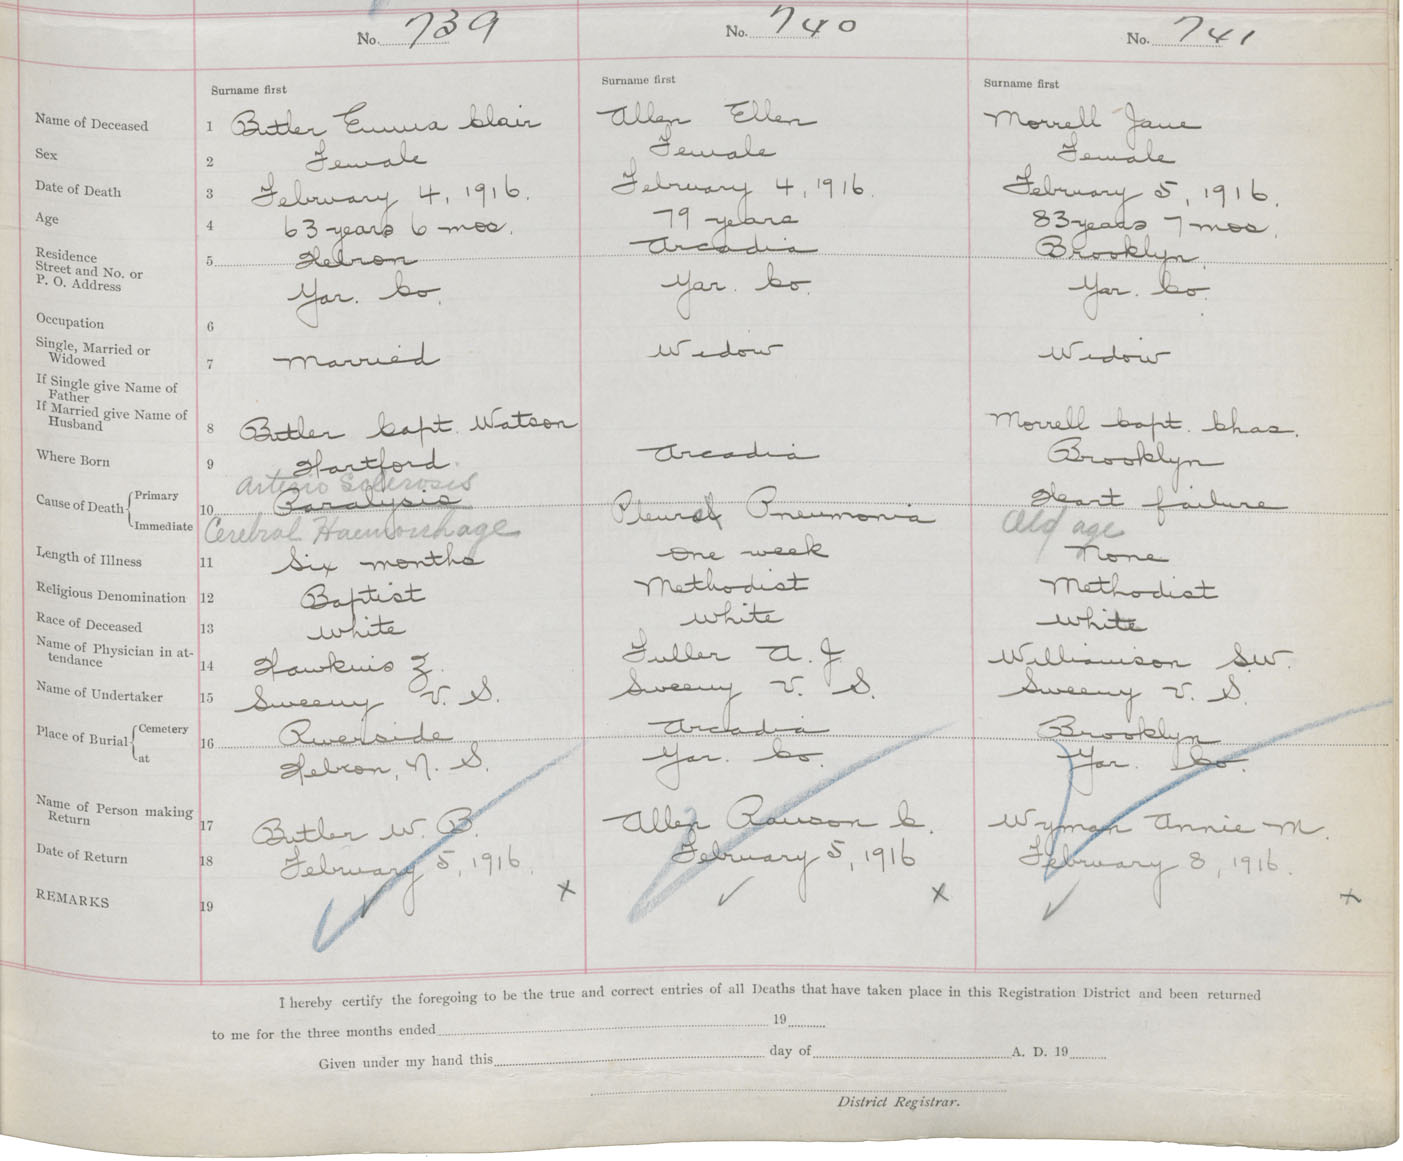 No. 739
No. 740
No. 741
Surname first
Surname first
Surname first
Name of Deceased 1 Butler Emma Clair
Allen Ellen
Morrell Jane
Sex 2 Female
Female
Female
Date of Death 3 February 4, 1916.
February 4, 1916.
February 5, 1916.
Age 4 63 years 6 mos.
79 years
83 years 7 mos.
Residence
Street and No. or
P. O. Address
5 Hebron
Yar. Co.
Arcadia
Yar. Co.
Brooklyn.
Yar. Co.
Occupation 6
Single, Married or
Widowed 7 Married
Widow
Widow
If Single give Name of
Father
If Married give Name of
Husband
8 Butler Capt. Watson
Morrell Capt. Chas.
Where Born 9 Hartford.
Arcadia
Brooklyn
Cause of Death Primary
Immediate
10 Arterio Sclerosis
Paralysis
Cerebral Haemorrhage
Pleural Pneumonia
Heart failure
Old age
Length of Illness 11 Six months
One week
None
Religious Denomination 12 Baptist
Methodist
Methodist
Race of Deceased 13 White
White
White
Name of Physician in at-
tendance 14 Hawkins Z.
Fuller A. J.
Williamson S.W.
Name of Undertaker 15 Sweeny V. S.
Sweeny V. S.
Sweeny V. S.
Place of Burial Cemetery
at
16 Riverside
Hebron, N. S.
Arcadia
Yar. Co.
Brooklyn
Yar. Co.
Name of Person making
Return 17 Butler W. B.
Allen Rawson C.
Wyman Annie M.
Date of Return 18 February 5, 1916.
February 5, 1916
February 8, 1916.
REMARKS 19
x
x
x
I hereby certify the foregoing to be the true and correct entries of all Deaths that have taken place in this Registration District and been returned
to me for the three months ended 19
Given under my hand this day of A. D. 19
District Registrar.